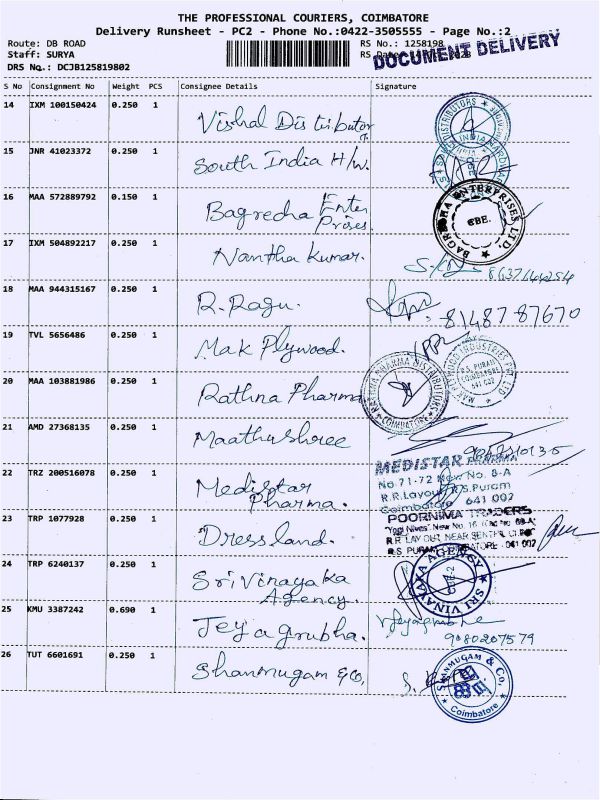 THE PROFESSIONAL COURIERS, COIMBATORE
Delivery Runsheet - PC2 - Phone No.:0422-3505555 - Page No.:2
Route: DB ROAD
Staff: SURYA
DRS No.: DCJB125819802
RS No.: 1258198
DOCUMENT DELIVERY
S No Consignment No Weight PCS Consignee Details Signature
14 IXM 100150424 0.250 1 Vishal Distributor
15 JNR 41023372 0.250 1 South India H/w.
16 MAA 572889792 0.150 1 Bagrecha Enter
Prises
BAGRECHA ENTERPRISES LTD.
CBE.
17 IXM 504892217 0.250 1 Nantha Kumar.
18 MAA 944315167 0.250 1 R. Ragu. 8148787670
19 TVL 5656486 0.250 1 Mak Plywood.
MAK PLYWOOD INDUSTRIES PVT. LTD
R.S. PURAM
COIMBATORE
641 002
20 MAA 103881986 0.250 1 Rathna Pharma
RATHNA PHARMA DISTRIBUTORS
COIMBATORE
21 AMD 27368135 0.250 1 Maathushree
22 TRZ 200516078 0.250 1 Medistar
Pharma.
MEDISTAR PHARMA
No 71-72 New No. 8-A
R.R.Layout R.S.Puram
Coimbatore 641 002
23 TRP 1077928 0.250 1 Dressland.
POORNIMA TRADERS
R.S. PURAM COIMBATORE - 641 002
24 TRP 6240137 0.250 1 Sri Vinayaka
Agency.
SRI VINAYAKA AGENCY
CBE-2
25 KMU 3387242 0.690 1 Jeyagrubha.
9080207579
26 TUT 6601691 0.250 1 Shanmugam & Co,
SHANMUGAM & Co.
Coimbatore